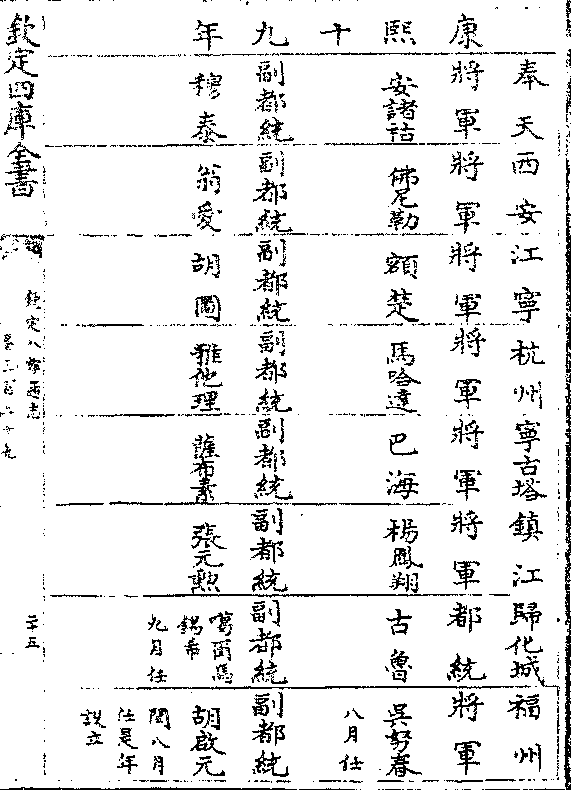 康熙十九年
奉天 西安 江寧 杭州 寧古塔 鎮江 歸化城 福州
將軍 將軍 將軍 將軍 將軍 將軍 都統 將軍
安諸祜 佛尼勒 額楚 馬哈達 巴海 楊鳳翔 古魯 吳努春
八月任
副都統 副都統 副都統 副都統 副都統 副都統 副都統 副都統
穆泰 翁愛 胡 雅他理 薩布素 張元勲 噶爾馬 胡啟元
錫希 閏八月
九月任 任是年
設立
欽定四庫全書
欽定八旗通志